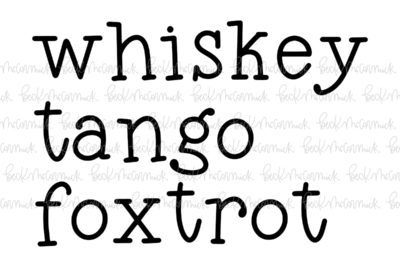 whiskey
tango
foxtrot